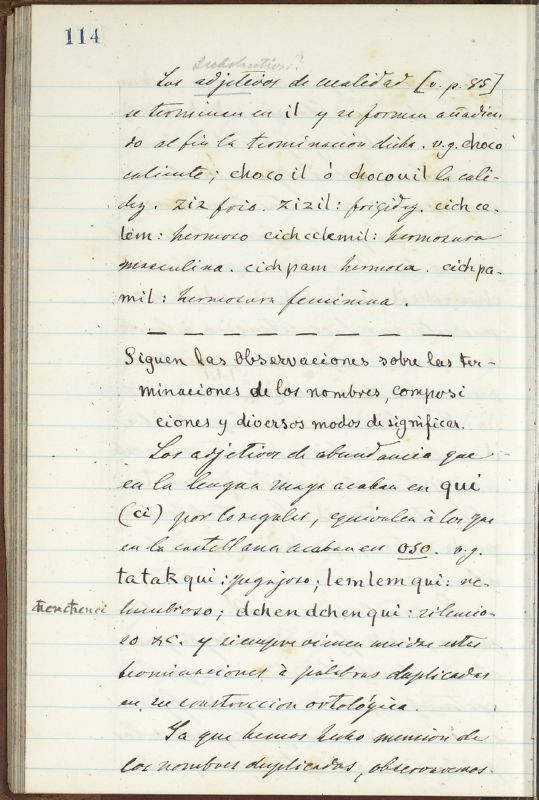 114
Substantivos?
Los adjetivos de cualidad [v. p. 85]
se terminan en il y se forman añadien
do al fin la terminacion dicha. v.g. choco
caliente; chocoil ó chocouil la cali-
dez. ziz frio. zizil: frigidez. cichce-
lem: hermoso cichcelemil: hermosura
masculina. cichpam hermosa. cichpa-
mil: hermosura feminina.
Siguen las Observaciones sobre las ter-
minaciones de los nombres, composi
ciones y diversos modos de significar.
Los adjetivos de abundancia que
en la lengua maya acaban en qui
(ci) por lo regular, equivalen à los que
en la castellana acaban en oso. v.g.
tatakqui: pegajoso; lemlemqui: re-
lumbroso; dchendchenqui: silencio-
so &c. y siempre vienen unidas estas
terminaciones à palabras duplicadas
en su construccion ortológica.
Ya que hemos hecho mencion de
los nombres duplicados, observaremos